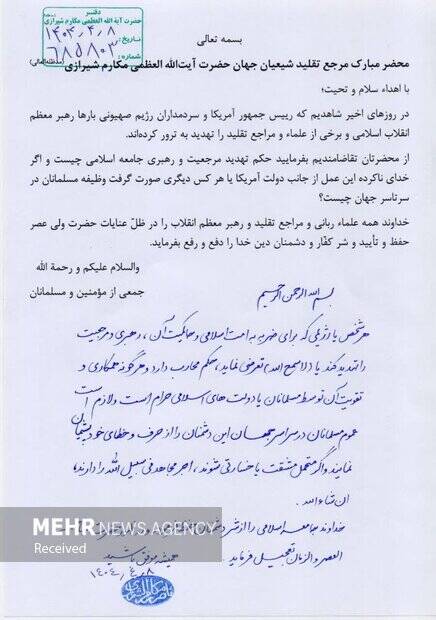 دفتر
حضرت آیة الله العظمی مکارم شیرازی
تاریخ: ۱۴۰۴,۴,۸
شماره: ۶۸۵۸۰۳
بسمه تعالی
محضر مبارک مرجع تقلید شیعیان جهان حضرت آیت‌الله العظمی مکارم شیرازی (مدظله‌العالی)
با اهداء سلام و تحیت؛
در روزهای اخیر شاهدیم که رییس جمهور آمریکا و سردمداران رژیم صهیونی بارها رهبر معظم
انقلاب اسلامی و برخی از علماء و مراجع تقلید را تهدید به ترور کرده‌اند.
از محضرتان تقاضامندیم بفرمایید حکم تهدید مرجعیت و رهبری جامعه اسلامی چیست و اگر
خدای ناکرده این عمل از جانب دولت آمریکا یا هر کس دیگری صورت گرفت وظیفه مسلمانان در
سرتاسر جهان چیست؟
خداوند همه علماء ربانی و مراجع تقلید و رهبر معظم انقلاب را در ظلّ عنایات حضرت ولی عصر
حفظ و تأیید و شر کفّار و دشمنان دین خدا را دفع و رفع بفرماید.
والسلام علیکم و رحمة الله
جمعی از مؤمنین و مسلمانان
بسم الله الرحمن الرحیم
هر شخص یا رژیمی که برای ضربه به امت اسلامی و حاکمیت آن، رهبری و مرجعیت
را تهدید کند یا (لاسمح الله) تعرضی نماید، حکم محارب دارد و هرگونه همکاری و
تقویت آن توسط مسلمانان یا دولت های اسلامی حرام است و لازم است
عموم مسلمانان در سراسر جهان این دشمنان را از حرف و خطای خود پشیمان
نمایند و اگر متحمل مشقت یا خسارتی شوند، اجر مجاهد فی سبیل الله را دارند؛
ان شاء الله.
خداوند جامعه اسلامی را از شر دشمنان
العصر و الزمان تعجیل فرماید
همیشه موفق باشید
۱۴۰۴,۴,۸
MEHR NEWS AGENCY
Received